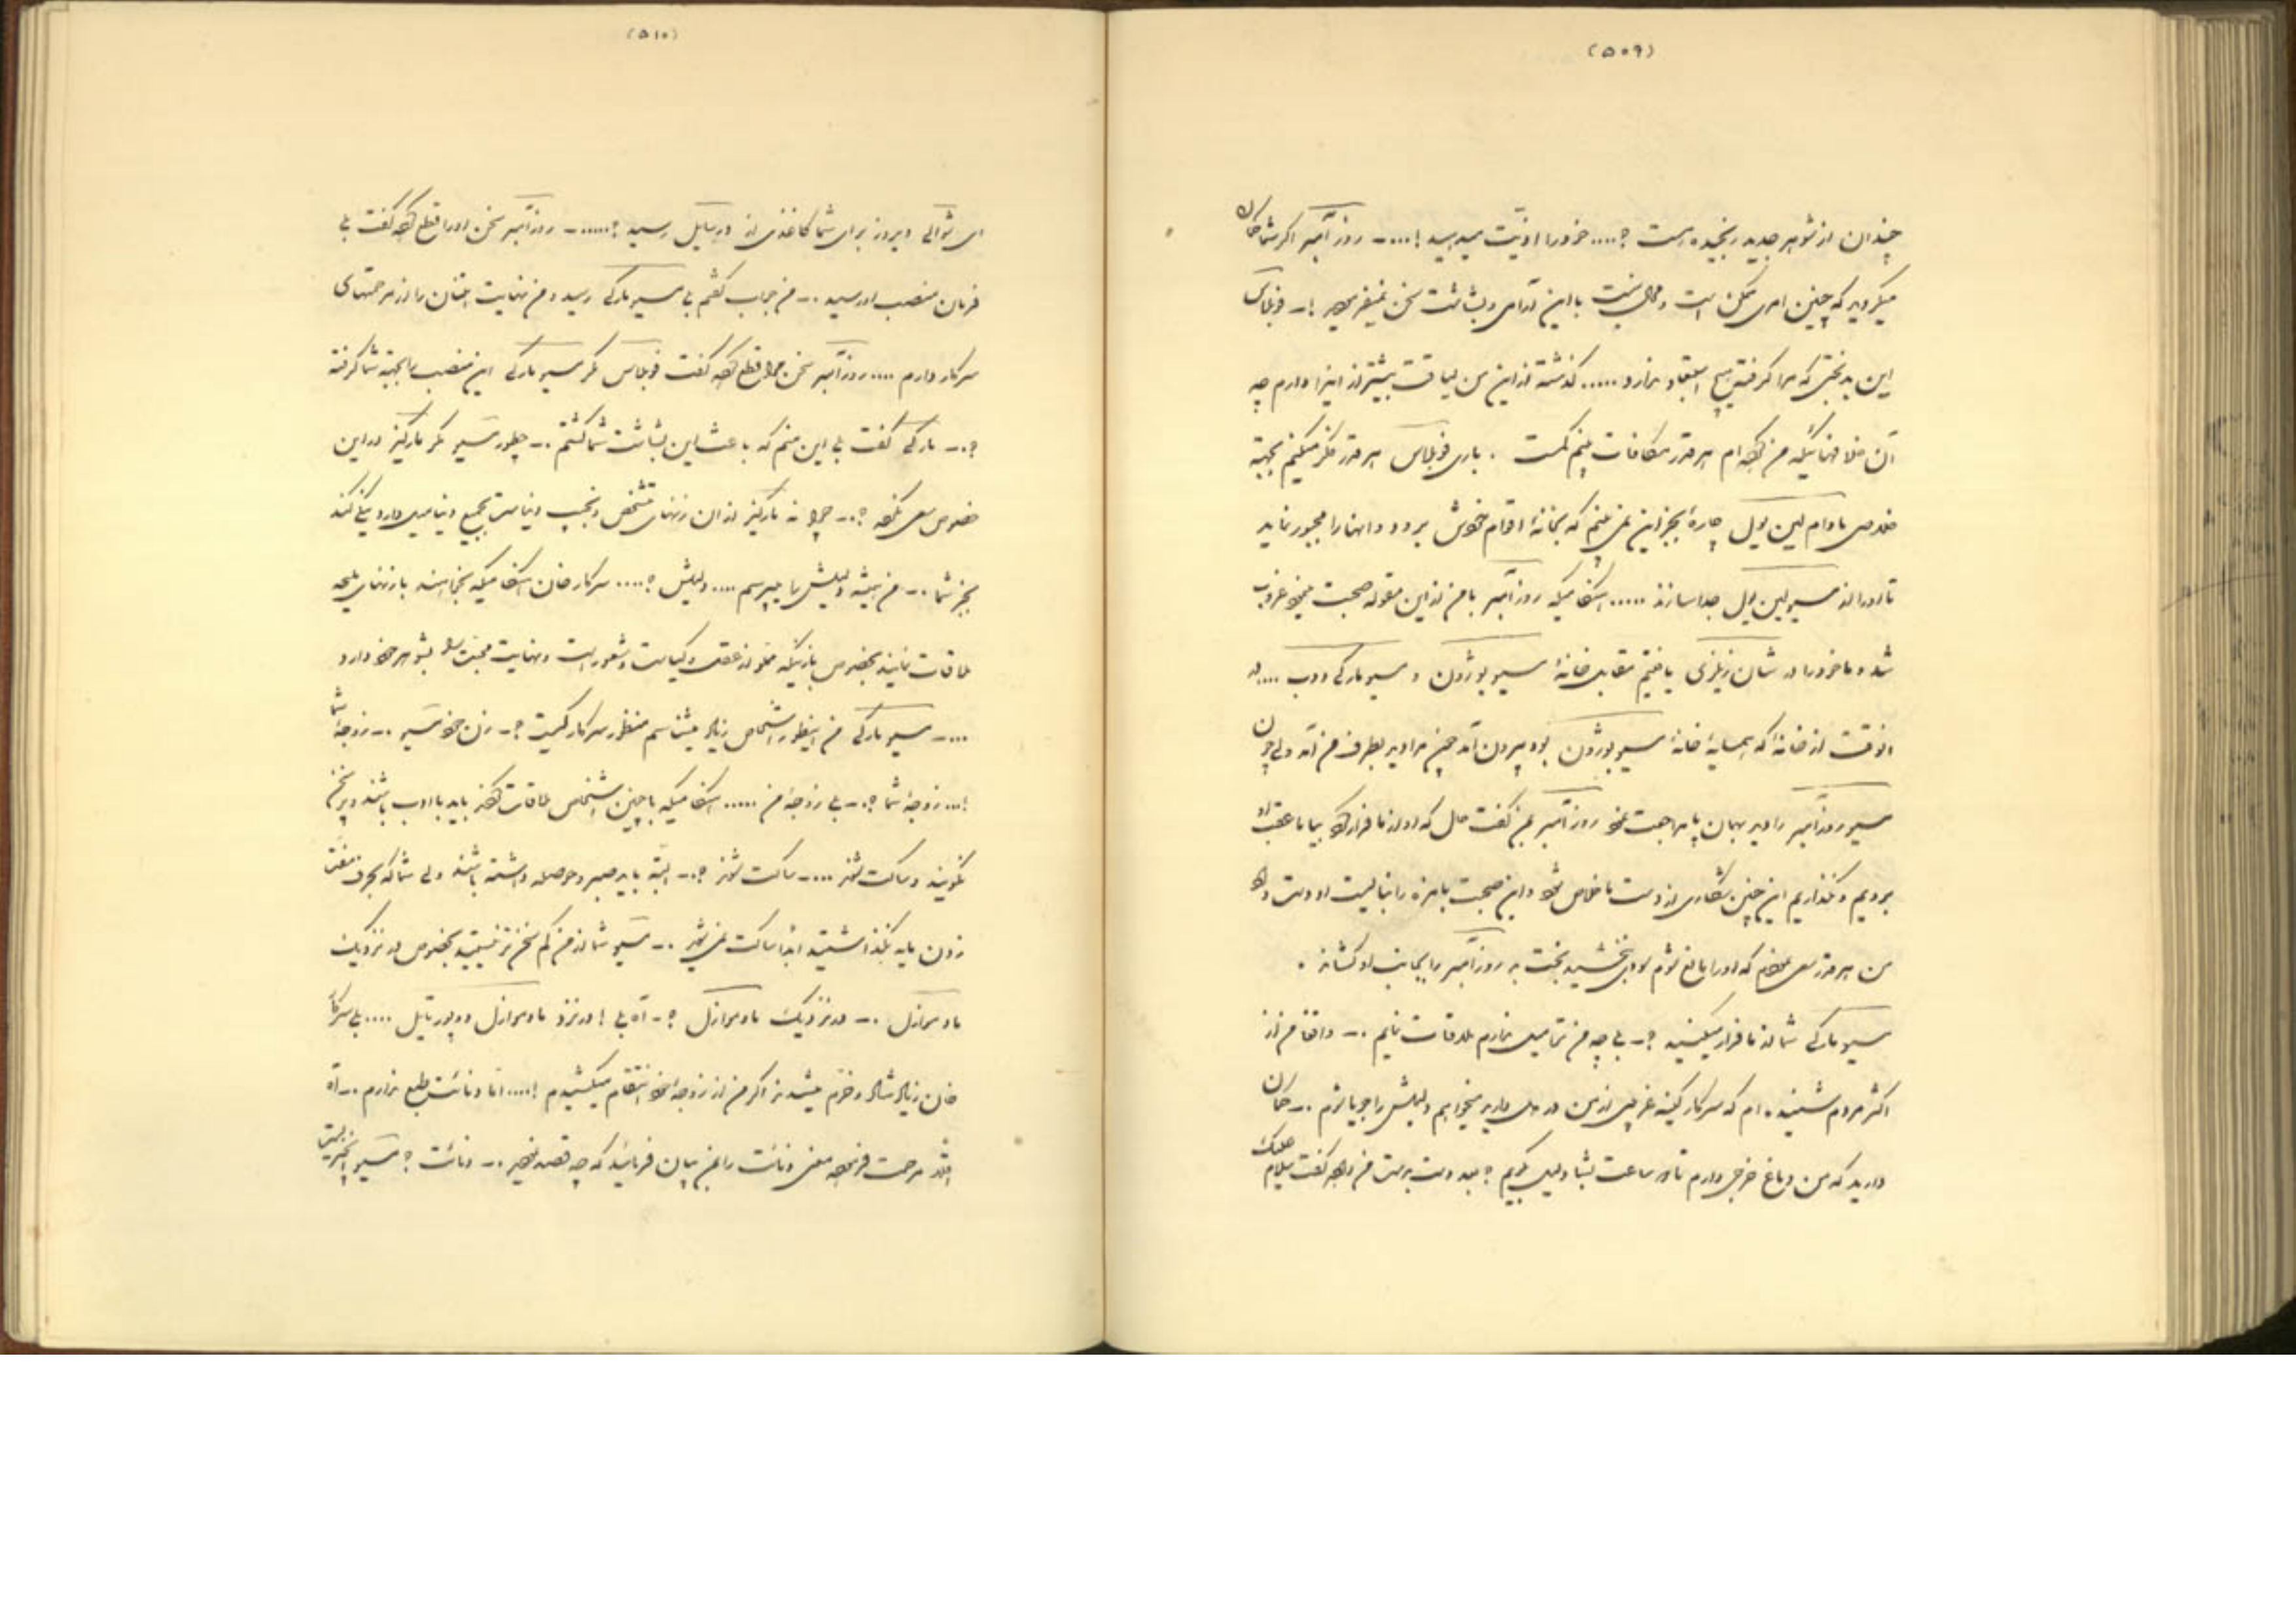 (۵۰۹)
چندان از شوهر جدید رنجیده است ؟.... خود را اذیت میدهید !...ـ روز آمبر اگر شما گمان
میکردید که چنین امری ممکن است و محال نیست با این آرامی و بشاشت سخن نمیفرمودید !ـ فوبلاس
این بدبختی که مرا گرفته هیچ استبعاد ندارد ..... گذشته از این من لیاقت بیشتر از اینرا دارم چه
آن خلافهائیکه من کرده ام هر قدر مکافات بینم کمست . باری فوبلاس هر قدر فکر میکنم بجهة
خلاصی مادام لین یول چارهٔ بجز این نمی بینم که بخانهٔ اقوام خویش برود و آنها را مجبور نماید
تا او را از مسیو لین یول جدا سازند ..... هنگامیکه روز آمبر با من از این مقوله صحبت مینمود غروب
شد و ما خود را در شان زیلزی یافتیم مقابل خانهٔ مسیو بوژون و مسیو مارکی دوب .... در
آنوقت از خانهٔ که همسایهٔ خانهٔ مسیو بوژون بود بیرون آمد چون مرا دید بطرف من آمد ولی چون
مسیو روز آمبر را دید بهمان پا مراجعت نمود روز آمبر بمن گفت حال که او از ما فرار کرد بیا ما عقب او
برویم و نگذاریم این چنین شکاری از دست ما خلاص شود و این صحبت بامزه را نبایست از دست داد
من هر قدر سعی کردم که او را مانع شوم سودی نبخشید بخت بد روز آمبر را بجانب او کشاند .
مسیو مارکی شما از ما فرار میکنید ؟ـ بی چه من تمامیل ندارم ملاقات نمایم .ـ واقعاً من از
اکثر مردم شنیده ام که سرکار کینه غریبی از من در دل دارید میخواهم دلیلش را جویا شوم .ـ گمان
دارید که من دماغ خرجی دارم تا دو ساعت بشما دلیل بگویم ؟ بعد دست بدست من داده گفت سلام علیک
(۵۱۰)
ای شوالی دیروز برای شما کاغذی از ورسایل رسید ؟.....ـ روز آمبر سخن او را قطع کرده گفت بلی
فرمان منصب او رسید .ـ من جواب گفتم بلی مسیو مارکی رسید و من نهایت امتنان را از مرحمتهای
سرکار دارم .... روز آمبر سخن مرا قطع کرده گفت فوبلاس مگر مسیو مارکی این منصب را بجهة شما گرفته
؟.ـ مارکی گفت بلی این منم که باعث این بشاشت شما گشتم .ـ چطور مسیو مگر مارکیز در این
خصوص سعی نکرده ؟.ـ چرا نه مارکیز از آن زنهای متشخص و نجیب دنیاست بجمیع دنیا میل دارد نیکی کند
بجز شما .ـ من همیشه دلیلش را میپرسم .... دلیلش ؟.... سرکار خان هنگامیکه بخواهند با زنهای صالحه
ملاقات نمایند بخصوص با زنیکه مملو از عقل و کیاست و شعور است و نهایت محبت را بشوهر خود دارد
...ـ مسیو مارکی من اینطور اشخاص زیاد میشناسم منظور سرکار کیست ؟ـ زن خود مسیو .ـ زوجهٔ شما
!... زوجهٔ شما ؟.ـ بلی زوجهٔ من ..... هنگامیکه با چنین اشخاص ملاقات کنند باید با ادب باشند و پر سخن
نگویند و ساکت شوند ...ـ ساکت شوند ؟.ـ البته باید صبر و حوصله داشته باشند ولی شما که بحرف مفت
زدن پایه بگذاشتید ابداً ساکت نمی شوید .ـ مسیو شما از من کم سخن تر نیستید بخصوص در نزدیک
مادموازل .ـ در نزدیک مادموازل ؟ـ آه بلی ! در نزد مادموازل دوپورتایل .... بلی سرکار
خان زیاد شاد و خرم میشدند اگر من از زوجهٔ خود انتقام میکشیدم !.... امّا دنائت طبع ندارم .ـ آه
آنقدر مرحمت فرموده معنی دنائت را بمن بیان فرمائید که چه قصد نمودید .ـ دنائت ؟ مسیو اینچیز نیست